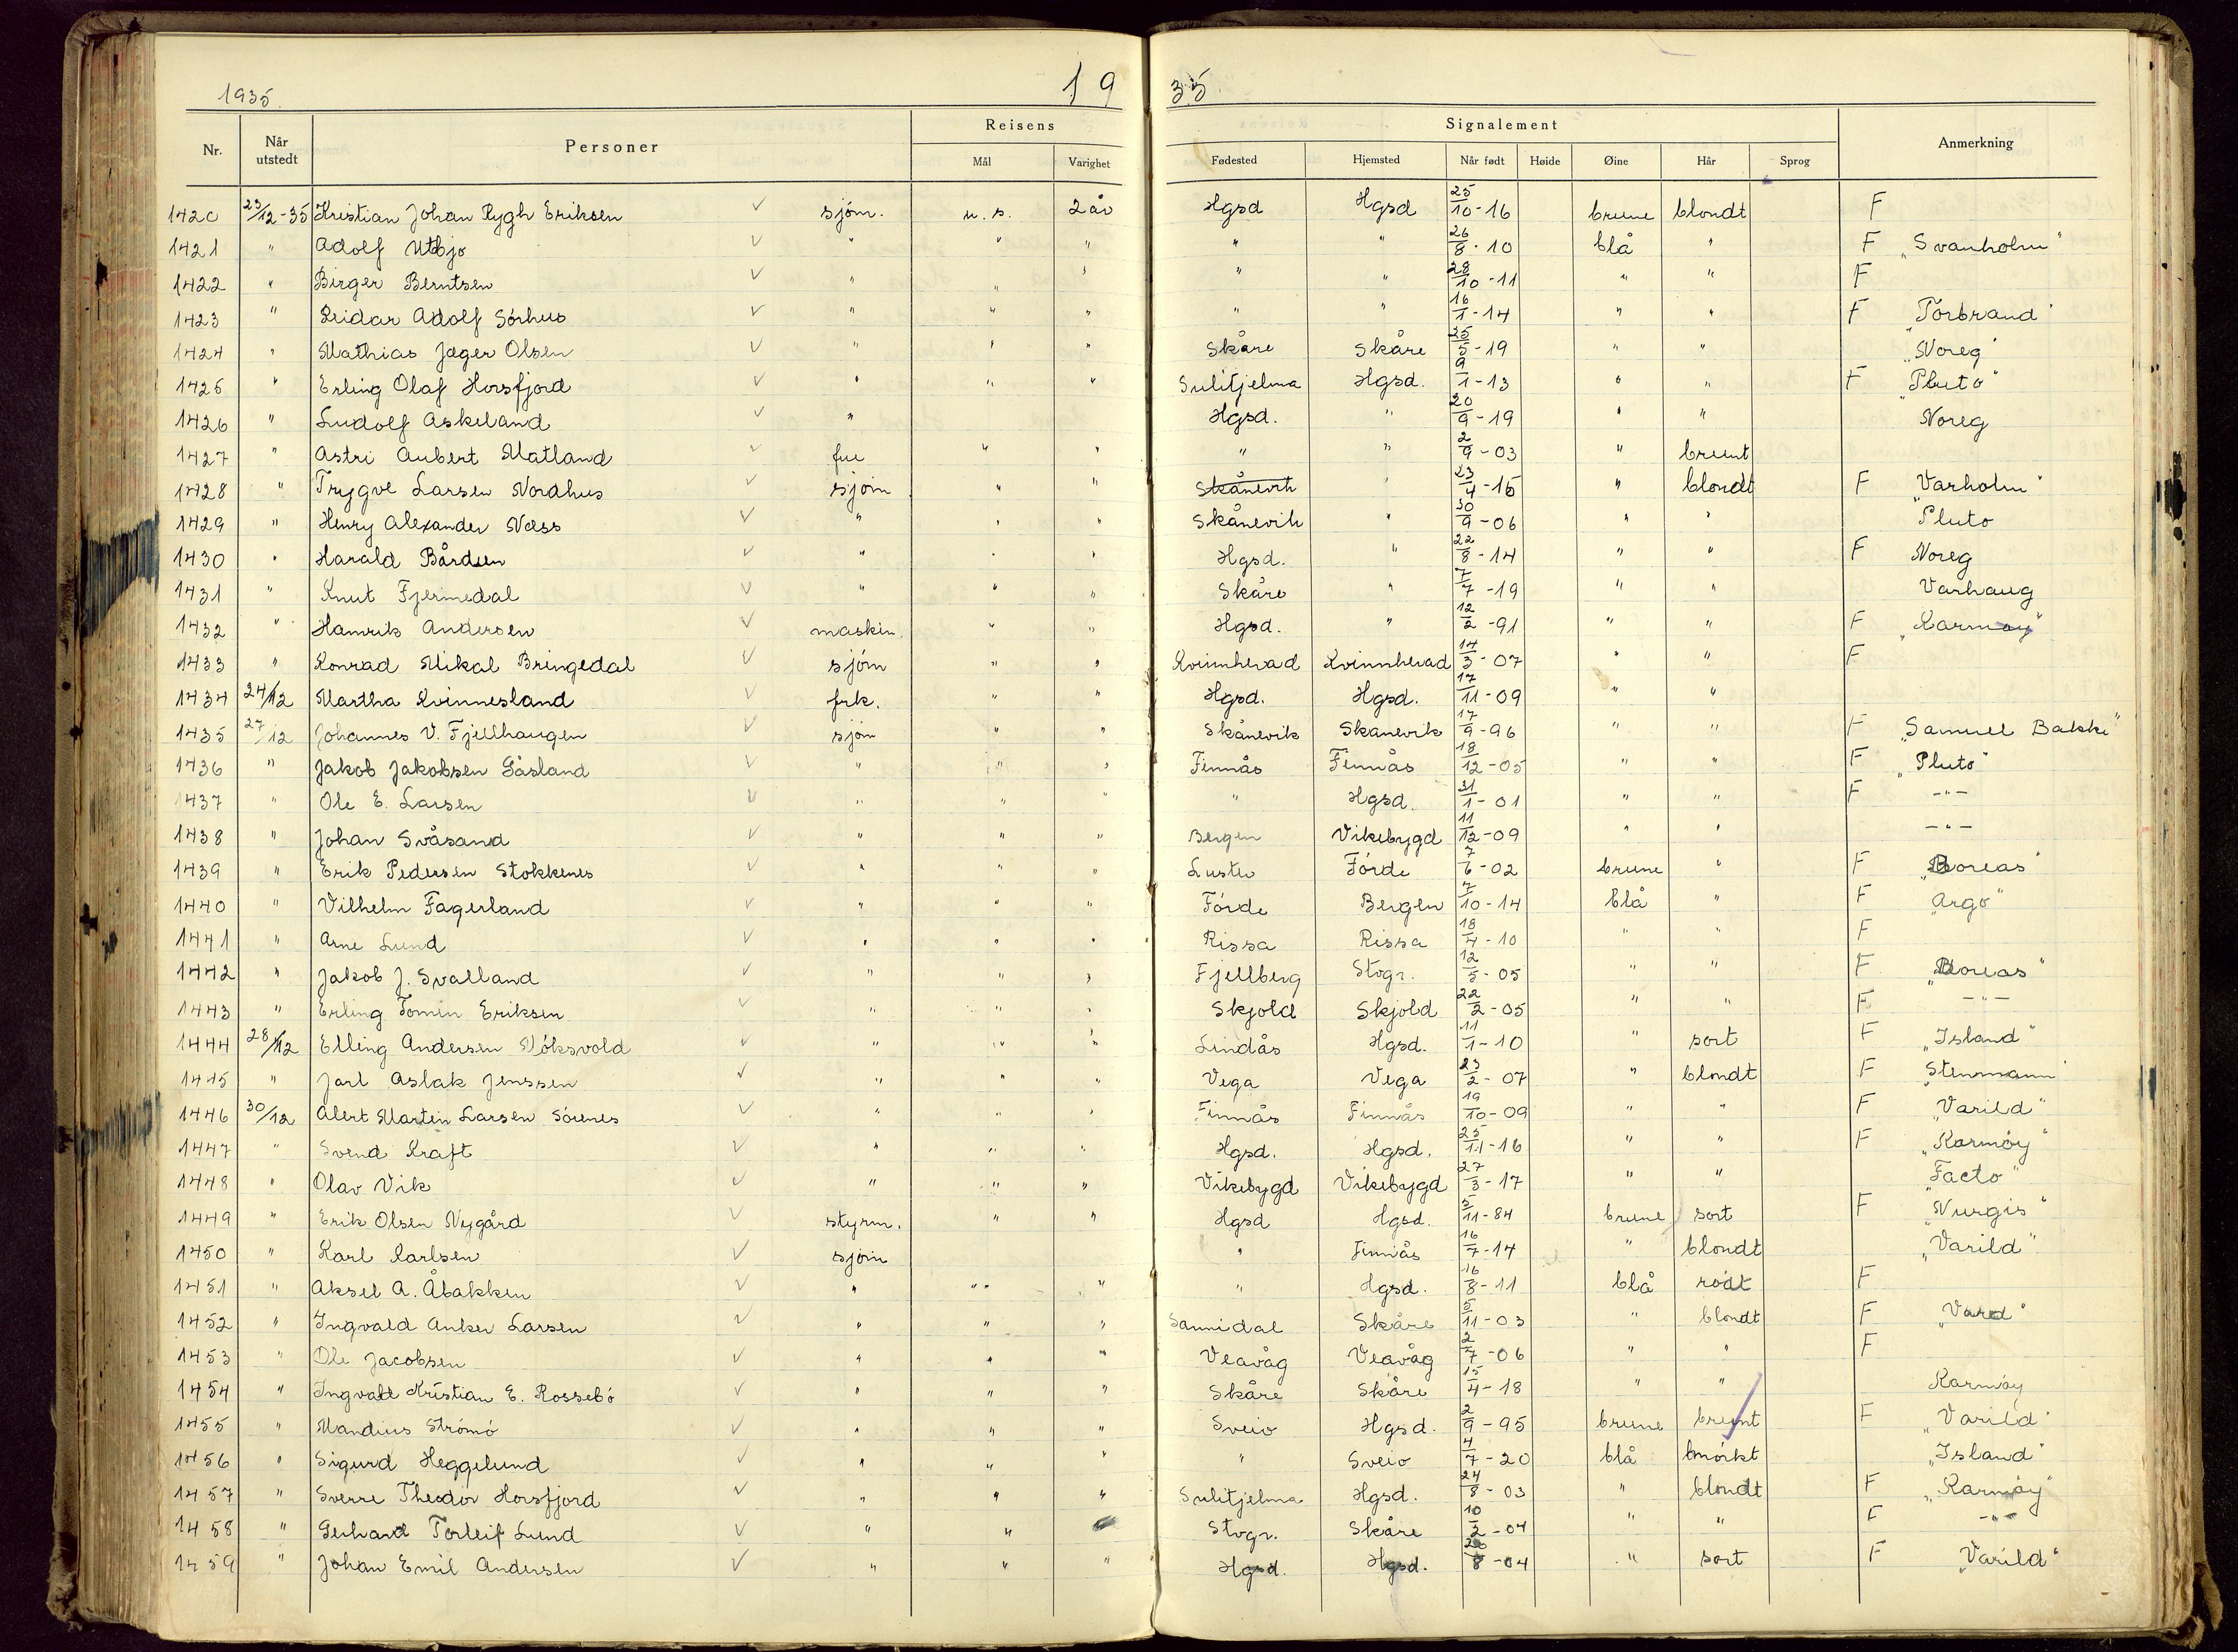 1935. 19 35
Reisens Signalement
Nr. Når utstedt Personer Mål Varighet Fødested Hjemsted Når født Høide Øine Hår Sprog Anmerkning
1420 23/12-35 Kristian Johan Rygh Eriksen ✓ sjøm. u.s. 2 år Hgsd Hgsd 25/10-16 brune blondt F
1421 " Adolf Utbjo ✓ " " " " " 26/8-10 blå " F „Svanholm"
1422 " Birger Berntsen ✓ " " " " " 28/10-11 " " F
1423 " Reidar Adolf Sørhus ✓ " " " " " 16/1-14 " " F „Torbrand"
1424 " Mathias Jæger Olsen ✓ " " " Skåre Skåre 25/5-19 " " „Noreg"
1425 " Erling Olaf Horsfjord ✓ " " " Sulitjelma Hgsd. 9/1-13 " " F „Pluto"
1426 " Ludolf Askeland ✓ " Hgsd. " 20/9-19 " " Noreg
1427 " Astri Aubert Matland ✓ fue " " " " 2/9-03 " brunt
1428 " Trygve Larsen Nordhus ✓ sjøm " " Skånevik " 23/4-15 " blondt F „Varholm"
1429 " Henry Alexander Næss ✓ " " " Skånevik " 30/9-06 " " Pluto
1430 " Harald Bårdsen ✓ " " " Hgsd. " 22/8-14 " " F Noreg
1431 " Knut Fjermedal ✓ " " " Skåre " 7/7-19 " " Varhaug
1432 " Hamrik Andersen ✓ maskin. " " Hgsd. " 12/2-91 " " F „Karmøy"
1433 " Konrad Mikal Bringedal ✓ sjøm " " Kvinnherad Kvinnherad 14/3-07 " " F
1434 24/12 Martha Kvinnesland ✓ frk. " " Hgsd. Hgsd. 17/11-09 " "
1435 27/12 Johannes V. Fjellhaugen ✓ sjøm " " Skånevik Skanevik 17/9-96 " " F „Samuel Bakke"
1436 " Jakob Jakobsen Gåsland ✓ " " " Finnås Finnås 18/12-05 " " F „Pluto"
1437 " Ole E. Larsen ✓ " " " " Hgsd. 31/1-01 " " F -"-
1438 " Johan Svåsand ✓ " " " Bergen Vikebygd 11/12-09 " " -"-
1439 " Erik Pedersen Stokkenes ✓ " " " Luster Førde 7/6-02 brune " F „Boreas"
1440 " Vilhelm Fagerland ✓ " " " Førde Bergen 7/10-14 blå " F „Argo"
1441 " Arne Lund ✓ " " " Rissa Rissa 18/4-10 " " F
1442 " Jakob J. Svalland ✓ " " " Fjellberg Stvgr. 12/5-05 " " F „Boreas"
1443 " Erling Tomin Eriksen ✓ " " " Skjold Skjold 22/2-05 " " F -"-
1444 28/12 Elling Andersen Nøksvold ✓ " " " Lindås Hgsd. 11/1-10 " sort F „Island"
1445 " Jarl Aslak Jenssen ✓ " " " Vega Vega 23/2-07 " blondt F „Stenmann"
1446 30/12 Alert Martin Larsen Sørenes ✓ " " " Finnås Finnås 19/10-09 " " F „Varild"
1447 " Svend Kraft ✓ " " " Hgsd. Hgsd. 25/11-16 " " F „Karmøy"
1448 " Olav Vik ✓ " " " Vikebygd Vikebygd 27/3-17 " " „Facto"
1449 " Erik Olsen Nygård ✓ styrm. " " Hgsd Hgsd. 5/11-84 brune sort F „Nurgis"
1450 " Karl Karlsen ✓ sjøm " Finnås 16/7-14 " blondt „Varild"
1451 " Aksel A. Åbakken ✓ " " " " Hgsd. 16/8-11 blå rødt F
1452 " Ingvald Anker Larsen ✓ " " " Sannidal Skåre 5/11-03 " blondt F „Vard"
1453 " Ole Jacobsen ✓ " " " Veavåg Veavåg 2/7-06 " " F
1454 " Ingvald Kristian E. Rossebø ✓ " " " Skåre Skåre 15/4-18 " " Karmøy
1455 " Mandius Strømø ✓ " " " Sveio Hgsd. 2/9-95 brune brunt F „Varild"
1456 " Sigurd Heggelund ✓ " " " " Sveio 4/7-20 blå mørkt „Island"
1457 " Sverre Theodor Horsfjord ✓ " " " Sulitjelma Hgsd. 24/8-03 " blondt F „Karmøy"
1458 " Gerhard Torleif Lund ✓ " " Stvgr. Skåre 10/2-04 " " F -"-
1459 " Johan Emil Andersen ✓ " " " Hgsd. Hgsd. 8-04 " sort F „Varild"